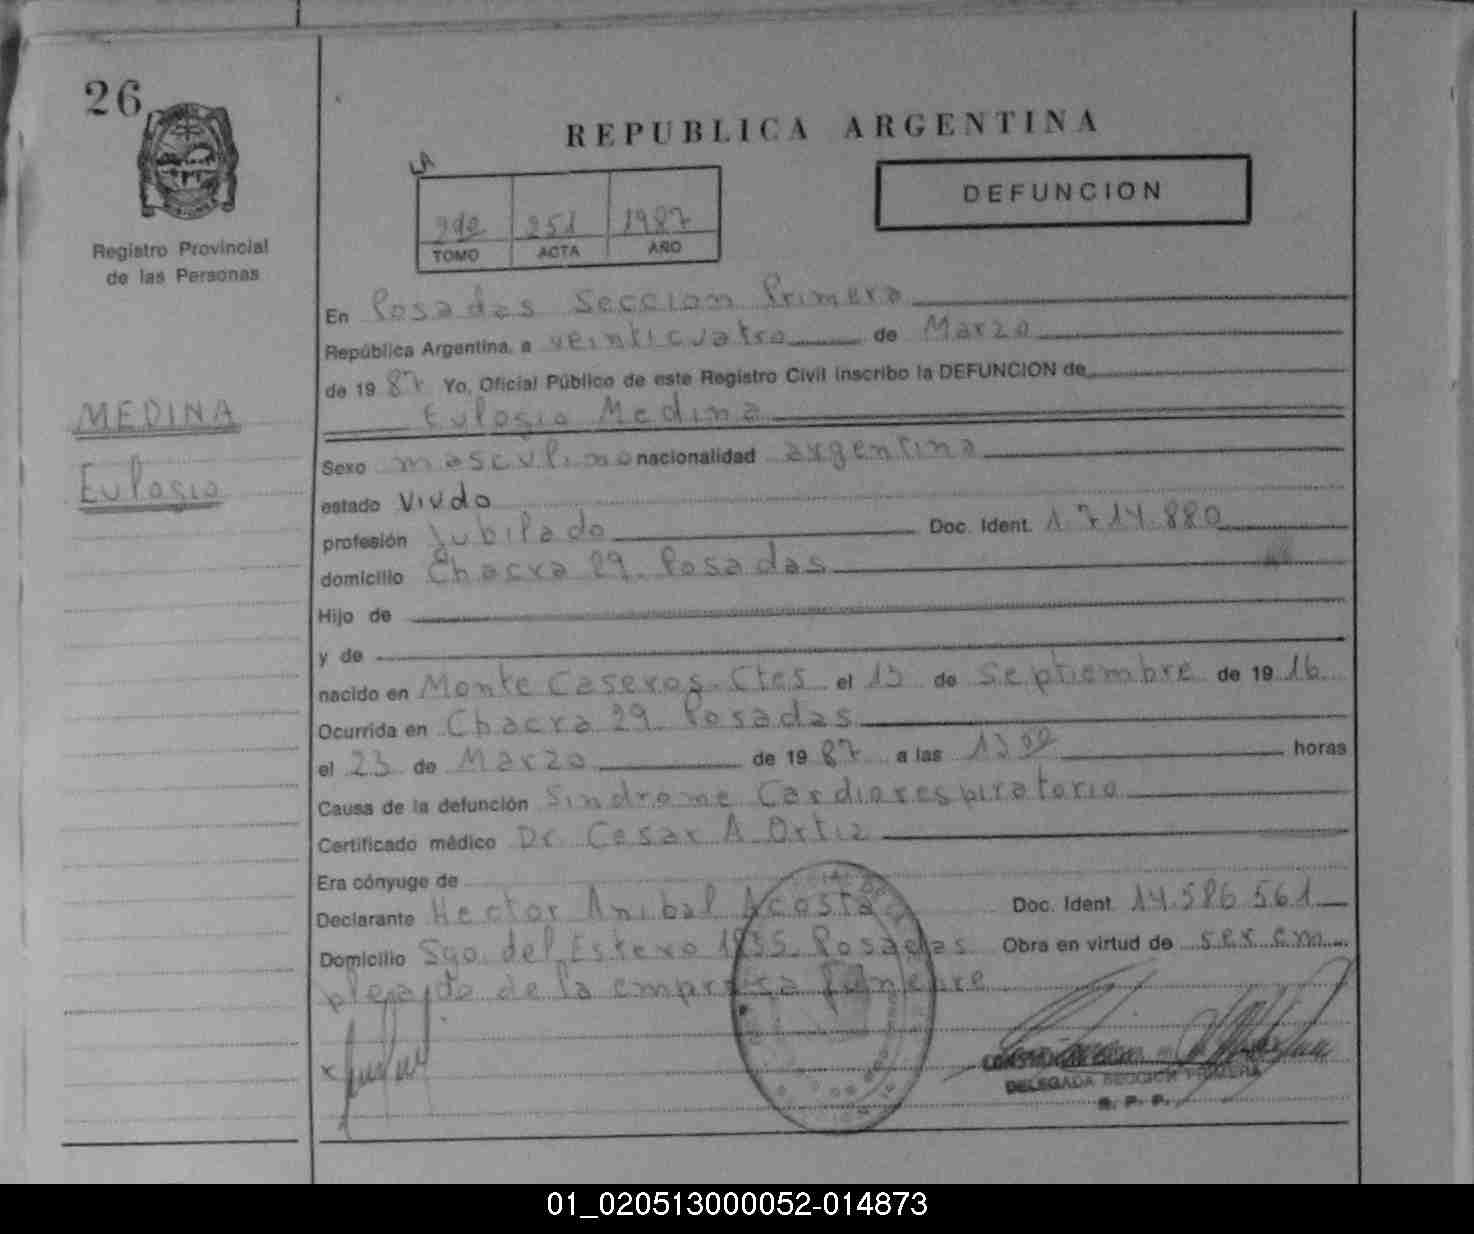 26
REPUBLICA ARGENTINA
DEFUNCION
LA
2do 251 1987
TOMO ACTA AÑO
Registro Provincial
de las Personas
MEDINA
Eulogio
En Posadas Seccion Primera
República Argentina, a veinticuatro de Marzo
de 19 87 Yo, Oficial Público de este Registro Civil inscribo la DEFUNCION de
Eulogio Medina
Sexo masculino nacionalidad argentina
estado Viudo
profesión Jubilado Doc. Ident. 1.714.880
domicilio Chacra 29. Posadas
Hijo de
y de
nacido en Monte Caseros. Ctes el 13 de Septiembre de 19 16
Ocurrida en Chacra 29. Posadas
el 23 de Marzo de 19 87 a las 13 00 horas
Causa de la defunción Sindrome Cardiorespiratorio
Certificado médico Dr. Cesar A Ortiz
Era cónyuge de
Declarante Hector Anibal Acosta Doc. Ident. 14.586.561
Domicilio Sgo. del Estero 1955. Posadas Obra en virtud de ser em
pleado de la empresa funebre
x
DELEGADA SECCION PRIMERA
R. P. P.
01_020513000052-014873